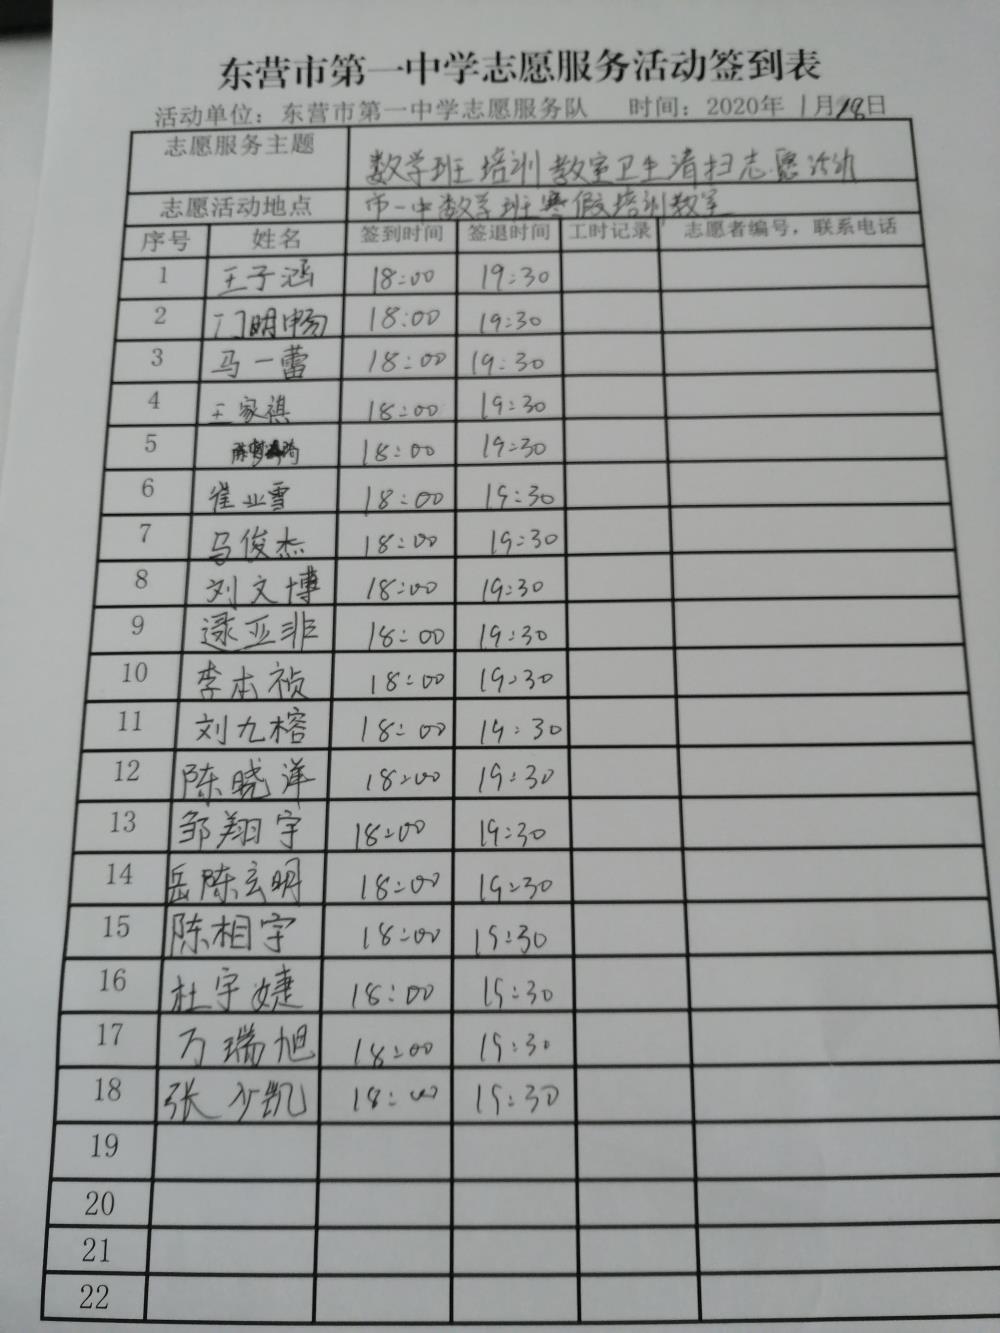 东营市第一中学志愿服务活动签到表
活动单位：东营市第一中学志愿服务队 时间：2020年 1月18日
志愿服务主题 数学班培训教室卫生清扫志愿活动
志愿活动地点 市一中数学班寒假培训教室
序号 姓名 签到时间 签退时间 工时记录 志愿者编号，联系电话
1 王子涵 18:00 19:30
2 门明畅 18:00 19:30
3 马一蕾 18:00 19:30
4 王家祺 18:00 19:30
5 18:00 19:30
6 崔业雪 18:00 19:30
7 马俊杰 18:00 19:30
8 刘文博 18:00 19:30
9 逯亚非 18:00 19:30
10 李本祯 18:00 19:30
11 刘九榕 18:00 19:30
12 陈晓洋 18:00 19:30
13 邹翔宇 18:00 19:30
14 岳陈玄明 18:00 19:30
15 陈相宇 18:00 19:30
16 杜宇婕 18:00 19:30
17 万瑞旭 18:00 19:30
18 张少凯 18:00 19:30
19
20
21
22